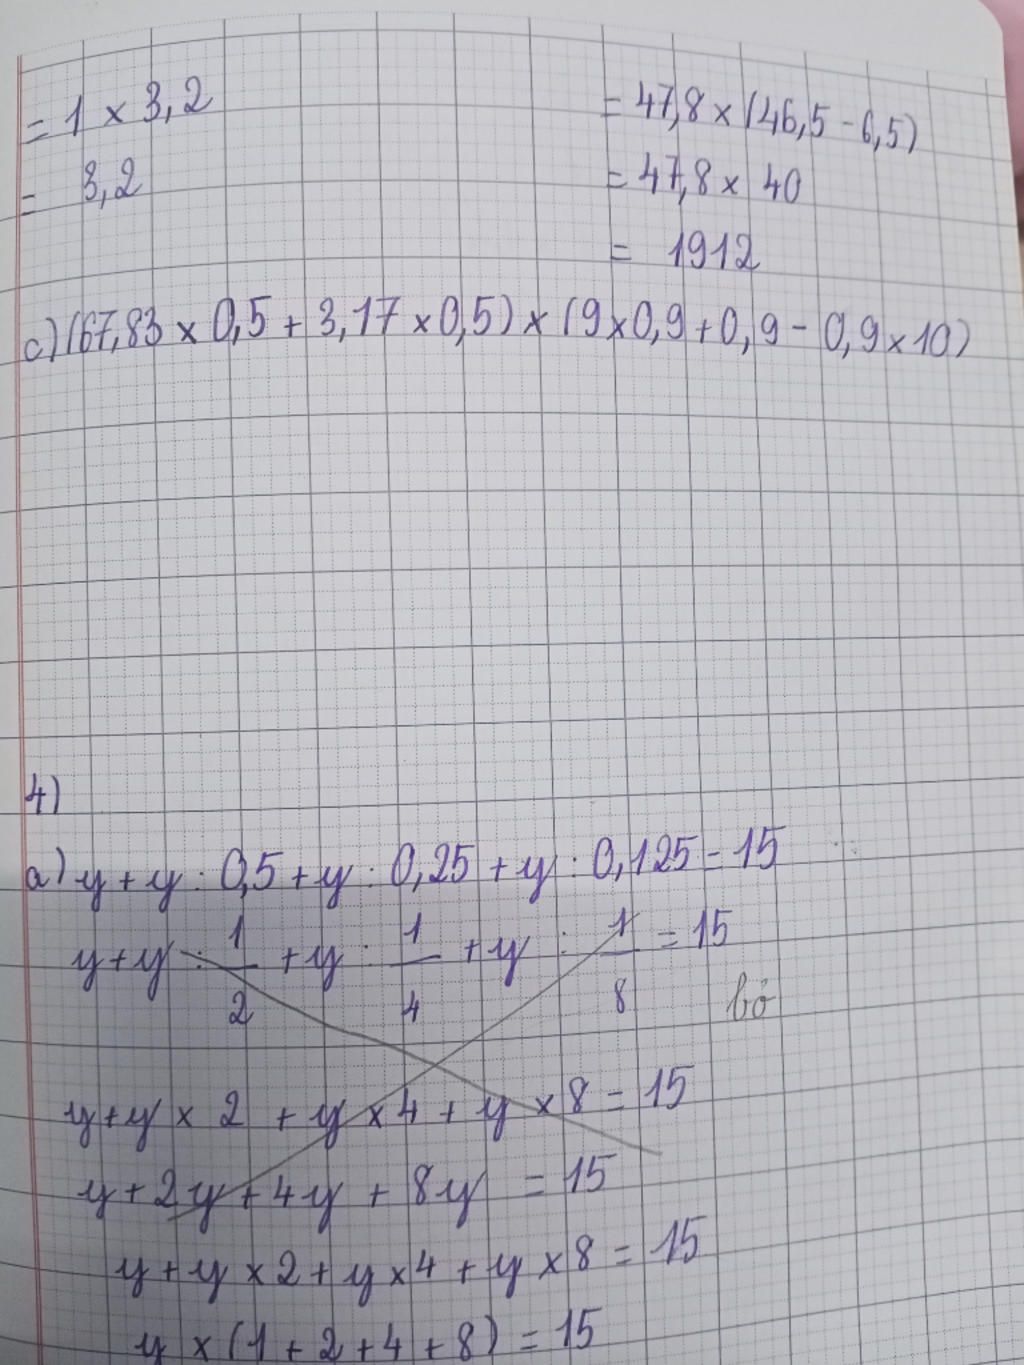 = 1 × 3,2
= 3,2
= 47,8 × (46,5 - 6,5)
= 47,8 × 40
= 1912
c) (67,83 × 0,5 + 3,17 × 0,5) × (9 × 0,9 + 0,9 - 0,9 × 10)
4)
a) y + y : 0,5 + y : 0,25 + y : 0,125 = 15
y + y : 1/2 + y : 1/4 + y : 1/8 = 15
bỏ
y + y × 2 + y × 4 + y × 8 = 15
y + 2y + 4y + 8y = 15
y + y × 2 + y × 4 + y × 8 = 15
y × (1 + 2 + 4 + 8) = 15